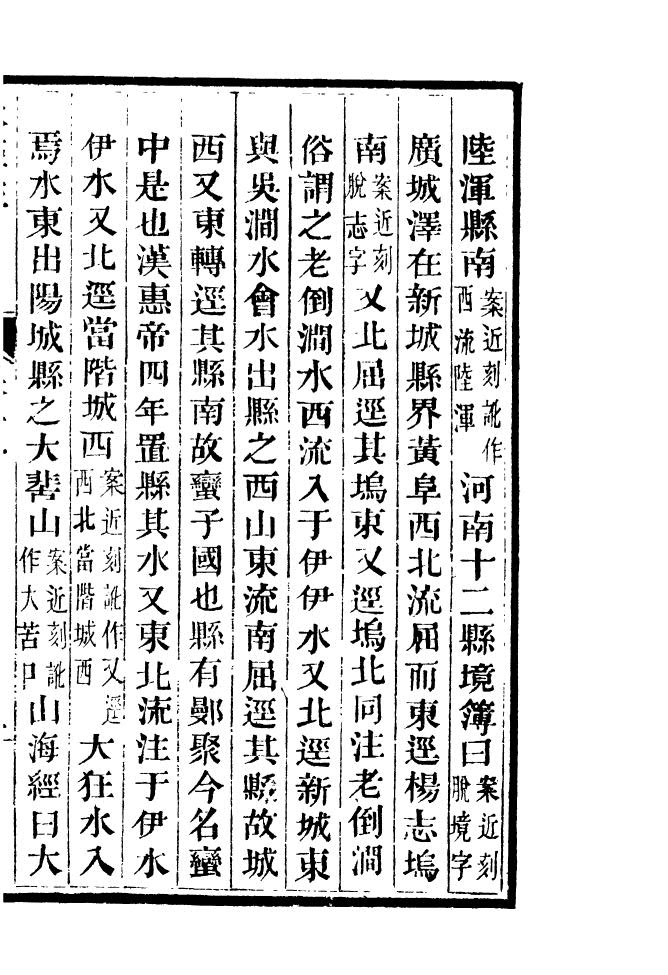 陸渾縣南案近刻訛作西流陸渾河南十二縣境簿曰案近刻脫境字
廣城澤在新城縣界黃阜西北流屈而東逕楊志塢
南案近刻脫志字又北屈逕其塢東又逕塢北同注老倒澗
俗謂之老倒澗水西流入于伊伊水又北逕新城東
與吳澗水會水出縣之西山東流南屈逕其縣故城
西又東轉逕其縣南故蠻子國也縣有鄤聚今名蠻
中是也漢惠帝四年置縣其水又東北流注于伊水
伊水又北逕當階城西案近刻訛作又逕西北當階城西大狂水入
焉水東出陽城縣之大𦰏山案近刻訛作大苦口山海經曰大